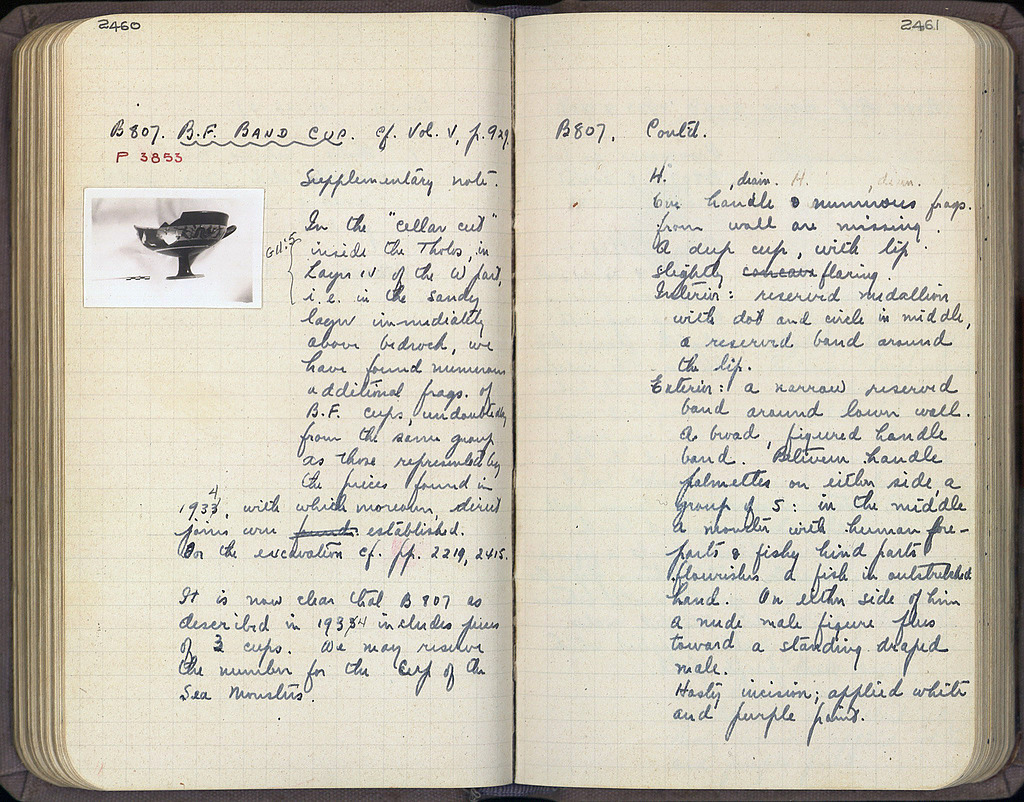 2460
B807. B.F. BAND CUP. cf. Vol. V, p. 929
P 3853
Supplementary note.
G11:5
In the "cellar cut"
inside the Tholos, in
Layer IV of the W part,
i.e. in the sandy
layer immediately
above bedrock, we
have found numerous
additional frags. of
B.F. cups, undoubtedly
from the same group
as those represented by
the pieces found in
1933, with which moreover, direct
4
joins were found established.
On the excavation cf. pp. 2219, 2415.
It is now clear that B 807 as
described in 1934 includes pieces
of 3 cups. We may reserve
the number for the Cup of the
Sea Monsters.
2461
B807, Cont'd.
H. , diam. H. , diam.
One handle & numerous frags.
from wall are missing.
A deep cup, with lip
slightly concave flaring.
Interior: reserved medallion
with dot and circle in middle,
a reserved band around
the lip.
Exterior: a narrow reserved
band around lower wall.
A broad, figured handle
band. Between handle
palmettes on either side, a
group of 5: in the middle
a monster with human fore-
parts & fishy hind parts
flourishes a fish in outstretched
hand. On either side of him
a nude male figure flees
toward a standing draped
male.
Hasty incision; applied white
and purple paint.